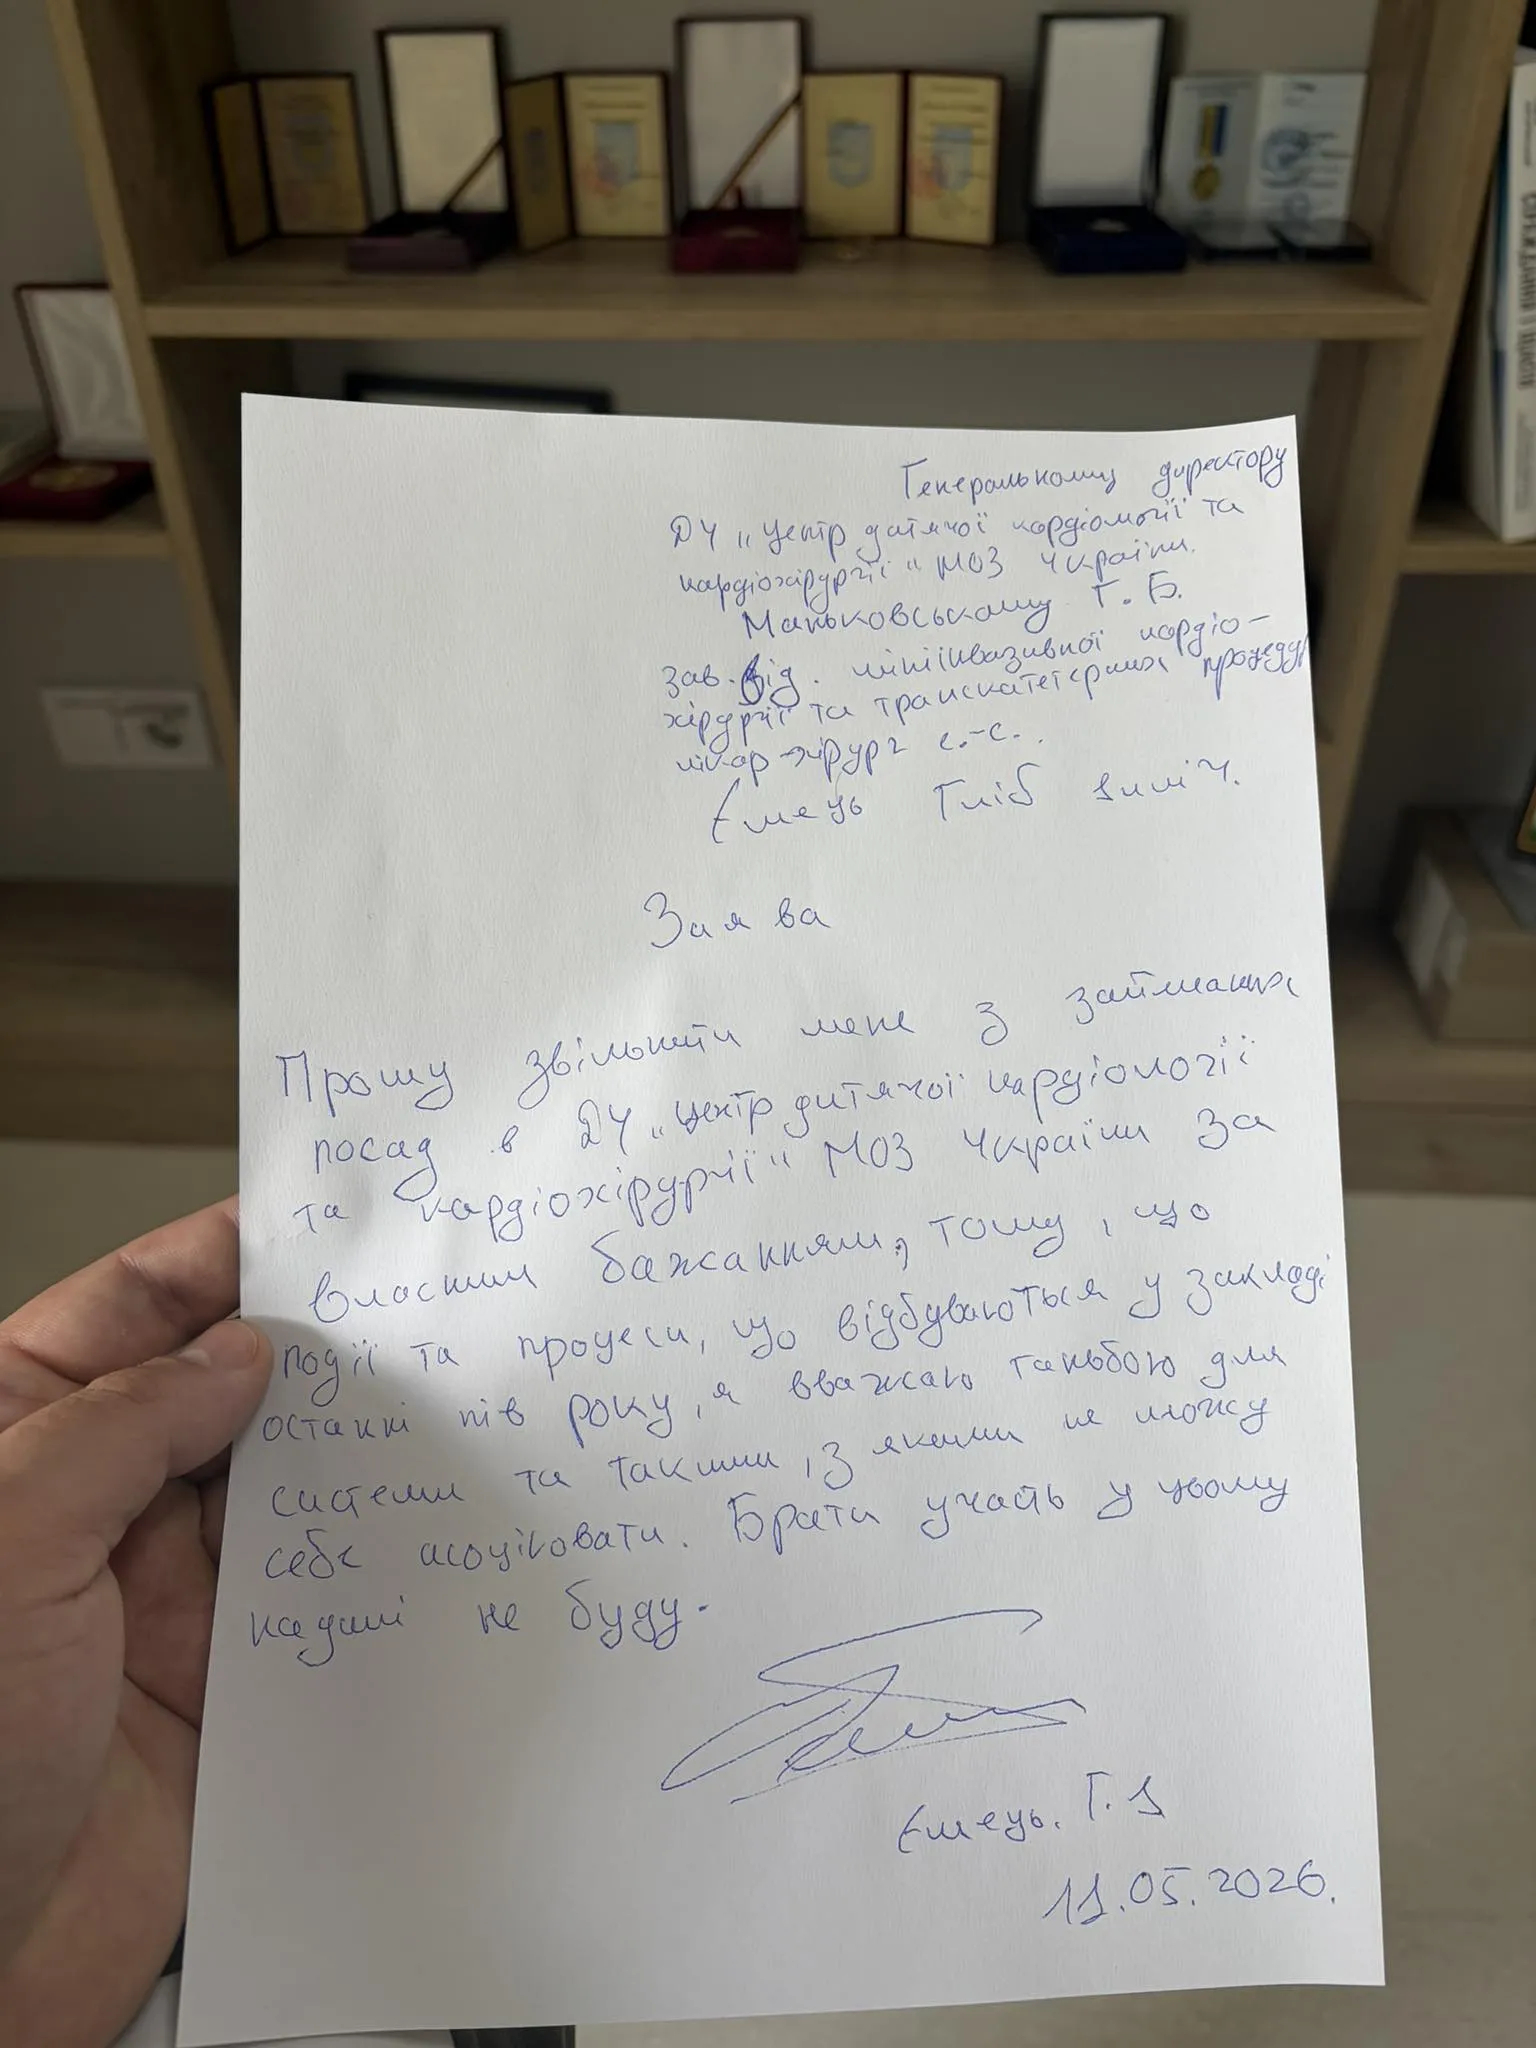 Генеральному директору
ДУ „Центр дитячої кардіології та
кардіохірургії“ МОЗ України.
Маньковському Г. Б.
зав. від. мініінвазивної кардіо-
хірургії та транскатетерних процедур
лікар-хірург с.-с..
Ємець Гліб Ілліч.
Заява
Прошу звільнити мене з займаних
посад в ДУ „Центр дитячої кардіології
та кардіохірургії“ МОЗ України за
власним бажанням, тому, що
події та процеси, що відбуваються у закладі
останні пів року, я вважаю ганьбою для
системи та такими, з якими не можу
себе асоціювати. Брати участь у цьому
надалі не буду.
Ємець. Г. І
11.05.2026.